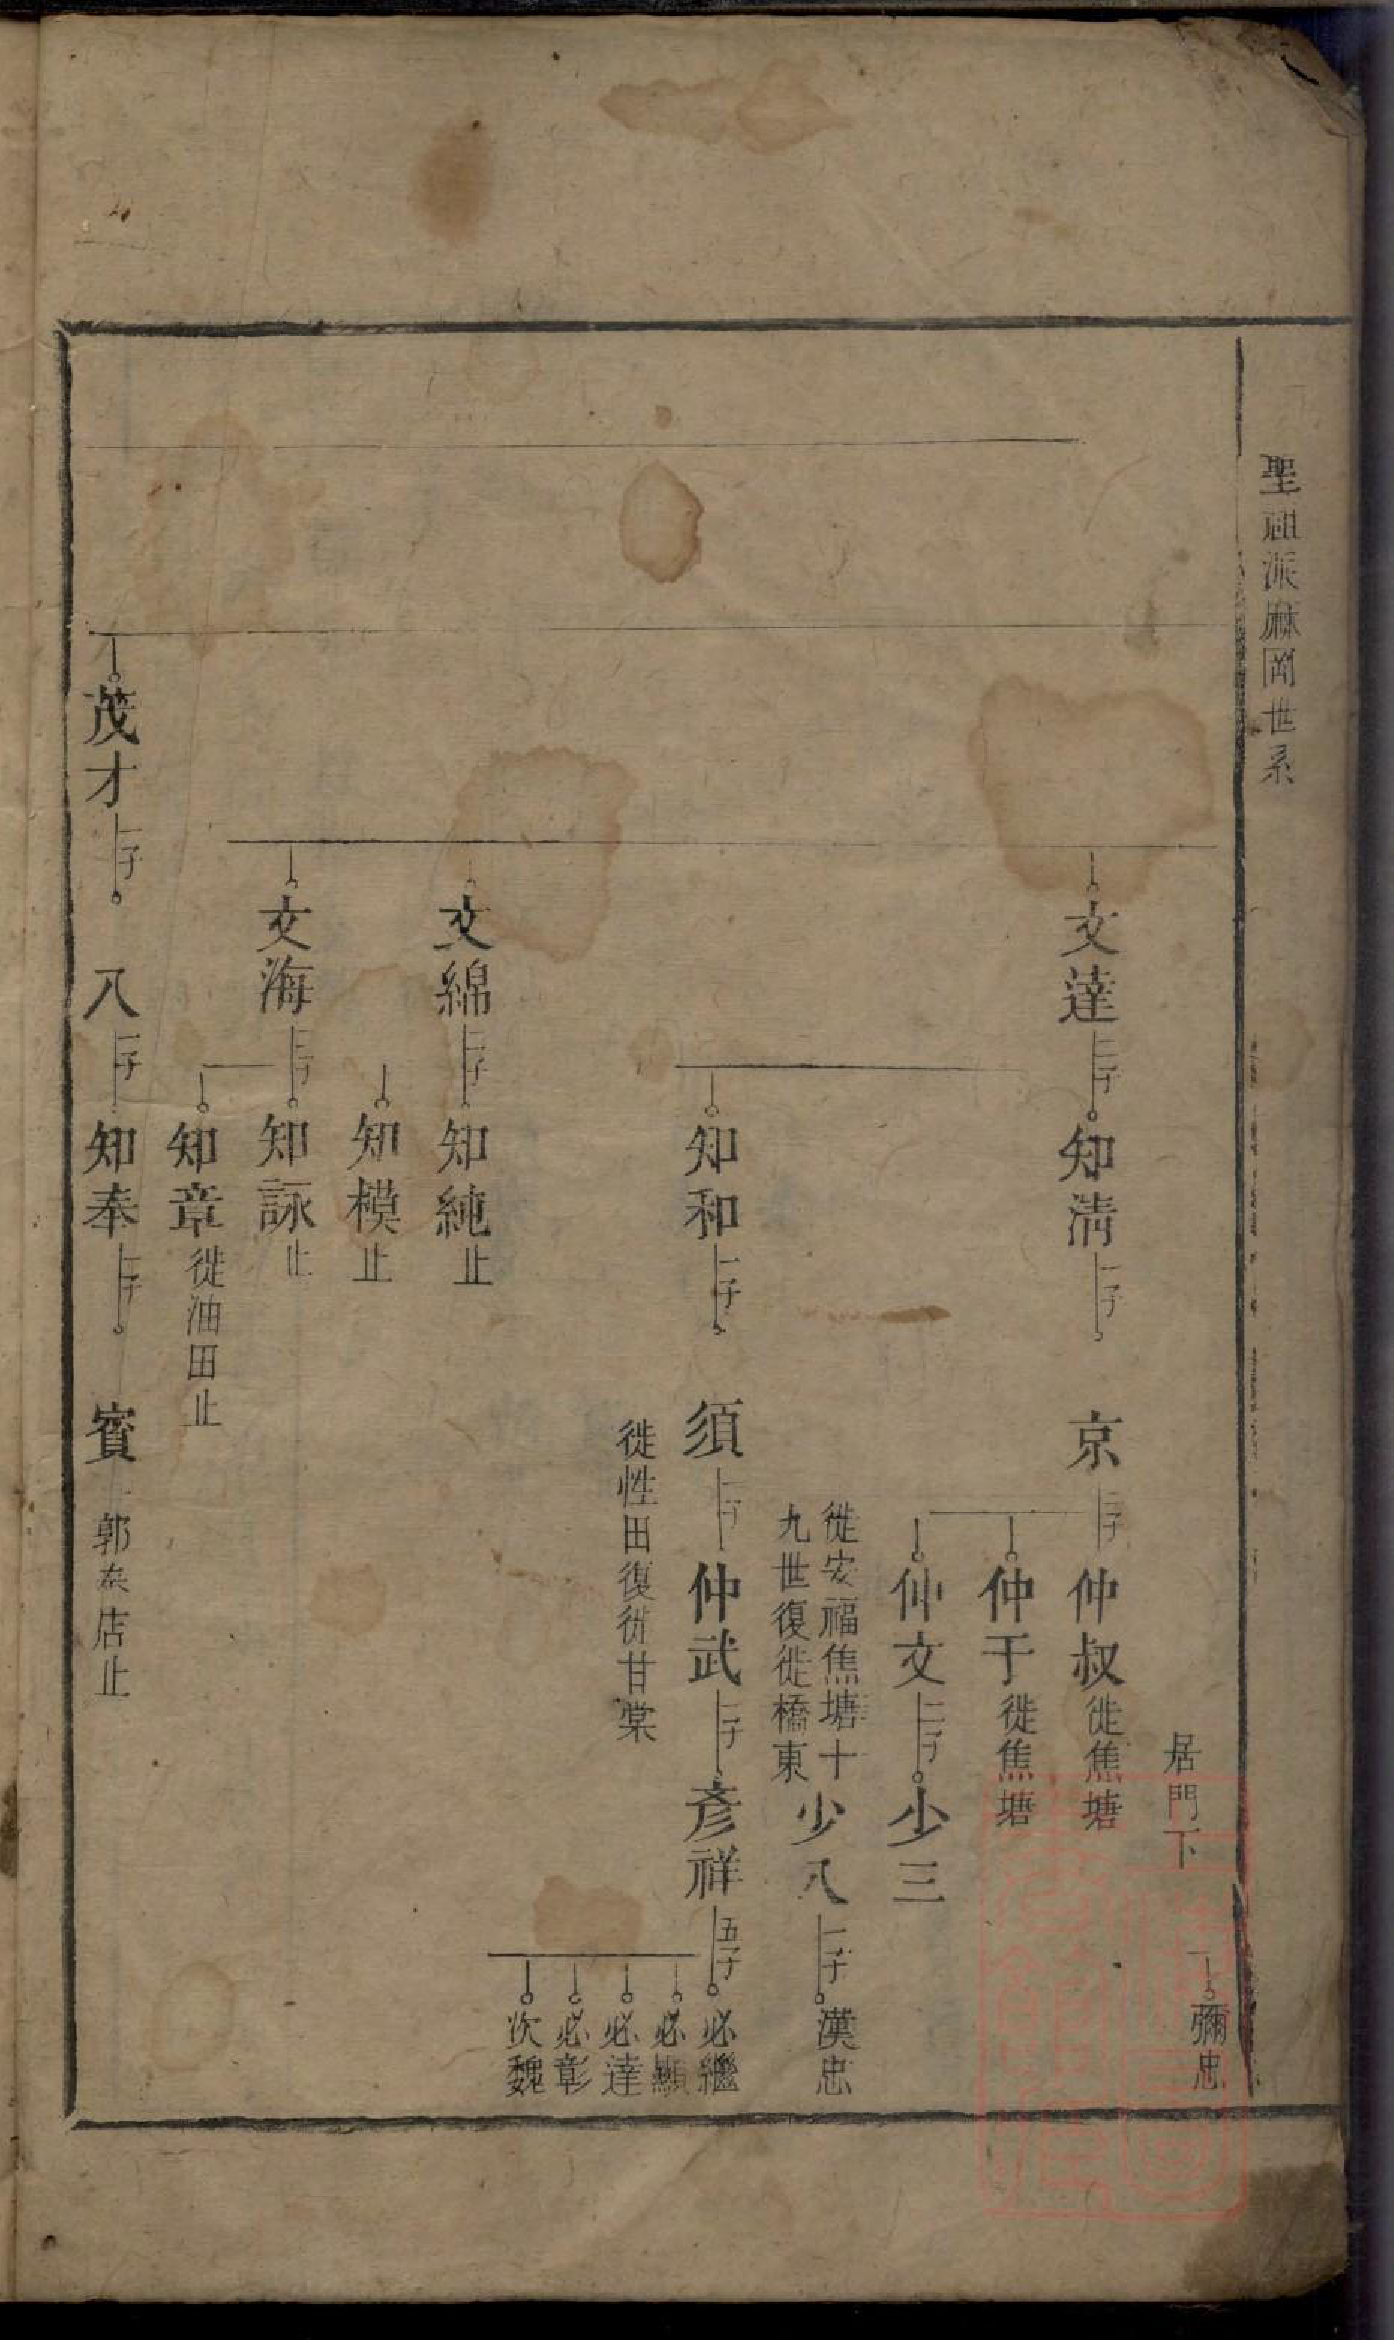 聖祖派麻岡世系
居門下
彌忠
文達 二子 知清 一子 京 三子 仲叔 徙焦塘
仲于 徙焦塘
仲文 二子 少三
徙安福焦塘十
九世復徙橋東
少八 一子 漢忠
知和 一子 須 一子 仲武 一子 彥祥 五子 必繼
徙性田復徙甘棠
必顯
必達
必彰
次魏
文綿 二子 知純 止
知模 止
文海 二子 知詠 止
知章 徙油田止
茂才 一子 八 一子 知奉 一子 賓 郭泰店止